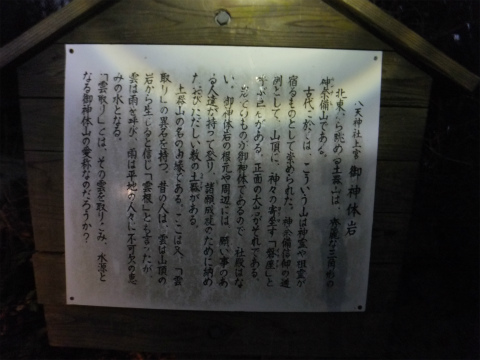 八天神社上宮 御神体岩
北東から眺める土器山は、秀麗な三角形の
神奈備山である。
古代においては、こういう山は神霊や祖霊が
宿るものとして崇められた。神奈備信仰の遺
例として、山頂に、神々の寄坐す「磐座」と
呼ぶ巨石がある。正面の大岩がそれである。
いものが御神体であるので、社殿はな
い。御神体岩の根元や周辺には、願い事のあ
る人達が持って登り、諸願成就のために納め
たおびただしい数の土器がある。
土器山の名の由縁である。ここは又、「雲
取り」の異名を持つ。昔の人は、雲は山頂の
岩から生じると信じ「雲根」とも言ったが、
雲は雨を呼び、雨は平地の人々に不可欠の恵
みの水となる。
「雲取り」とは、その雲を取りこみ、水源と
なる御神体山の愛称なのだろうか?